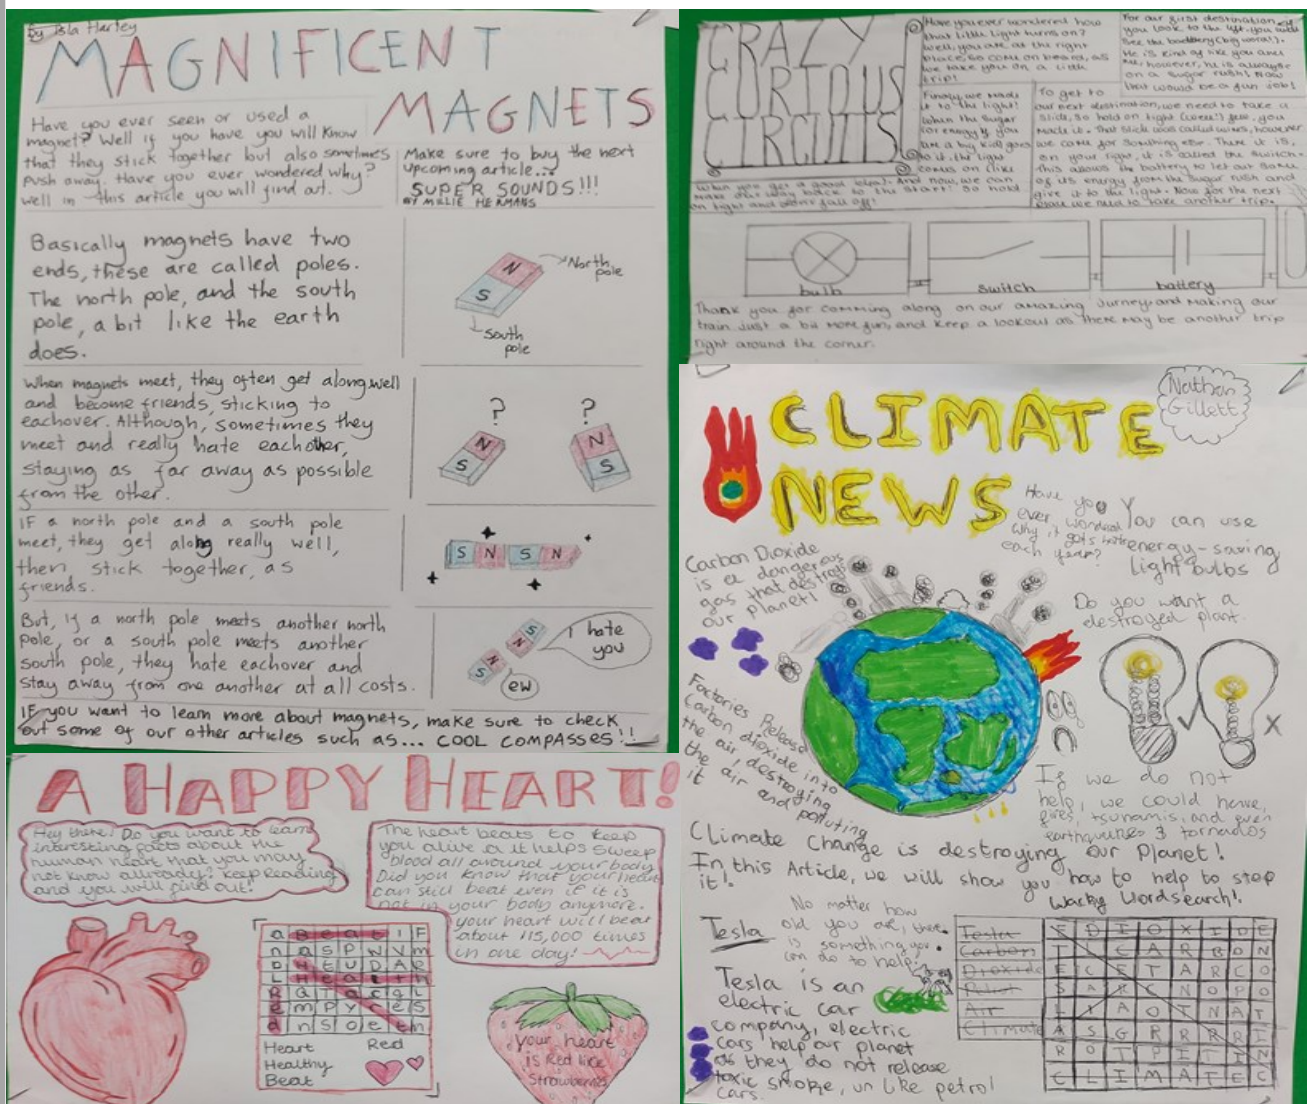 By Isla Hartley
MAGNIFICENT
MAGNETS
Have you ever seen or used a
magnet? Well if you have you will know
that they stick together but also sometimes
push away. Have you ever wondered why?
well in this article you will find out.
Make sure to buy the next
upcoming article...
SUPER SOUNDS!!!
BY MILLIE HERMANS
Basically magnets have two
ends, these are called poles.
The north pole, and the south
pole, a bit like the earth
does.
N
S
North
pole
South
pole
When magnets meet, they often get along well
and become friends, sticking to
eachover. Although, sometimes they
meet and really hate eachother,
staying as far away as possible
from the other.
? ?
N N
S S
IF a north pole and a south pole
meet, they get along really well,
then stick together, as
friends.
S N S N
But, if a north pole meets another north
pole, or a south pole meets another
south pole, they hate eachover and
stay away from one another at all costs.
S
N
N
S
I hate
you
ew
IF you want to learn more about magnets, make sure to check
out some of our other articles such as... COOL COMPASSES!!
CRAZY
CURIOUS
CIRCUITS
Have you ever wondered how
that little light turns on?
Well, you are at the right
place, so come on board, as
we take you on a little
trip!
For our first destination,
you look to the left, you will
see the battery (big word!).
He is kind of like you and
me, however, he is always
on a sugar rush! Now
that would be a fun job!
To get to
our next destination, we need to take a
slide, so hold on tight (weee!) few, you
made it. That slide was called wires, however
we came for something else. There it is,
on your right, it is called the switch.
This allows the battery to let out some
of its energy from the sugar rush and
give it to the light. Now for the next
place we need to take another trip.
Finally we made
it to the light!
When the sugar
(or energy if you
are a big kid) goes
to it, the light
comes on like
when you get a good idea!. And now, we can
make our way back to the start! So hold
on tight and don't fall off!
bulb
switch
battery
Thank you for comming along on our amazing Jurney and making our
train just a bit more fun, and keep a lookout as there may be another trip
right around the corner.
Nathan
Gillett
CLIMATE
NEWS
Have you
ever wonderd
why it gets hotter
each year?
You can use
energy-saving
light bulbs
Carbon Dioxide
is a dangerous
gas that destroys
our planet!
Do you want a
destroyed plant.
Factories Release
Carbon dioxide into
the air, destroying
the air and polluting
it
If we do not
help, we could have,
fires, tsunamis, and even
earthquakes & tornados
Climate Change is destroying our Planet!
In this Article, we will show you how to help to stop
it!.
Wacky Wordsearch!.
Tesla
No matter how
old you are, there
is something you
can do to help.
Tesla is an
electric car
company, electric
cars help our planet
as they do not release
toxic smoke, un like petrol
cars.
Tesla
Carbon
Dioxide
Air
Climate
E D I O X I D E
T L C A R B O N
E C E T A R C O
S A R C N O P O
L X A O T N A T
A S G R R R R I
R O I P I T I N
C L I M A T E C
A HAPPY HEART!
Hey there! Do you want to learn
interesting facts about the
human heart that you may
not know allready? keep reading
and you will find out!
The heart beats to keep
you alive as it helps sweep
blood all around your body.
Did you know that your heart
can still beat even if it is
not in your body anymore.
your heart will beat
about 115,000 times
in one day!
a B e a t I F
n a S P W V m
D H E U D A R
L H e a r t h
R a T a c g L
e m p y r e s
d n S o e t n
Heart Red
Healthy
Beat
your heart
is Red like
Strawberries